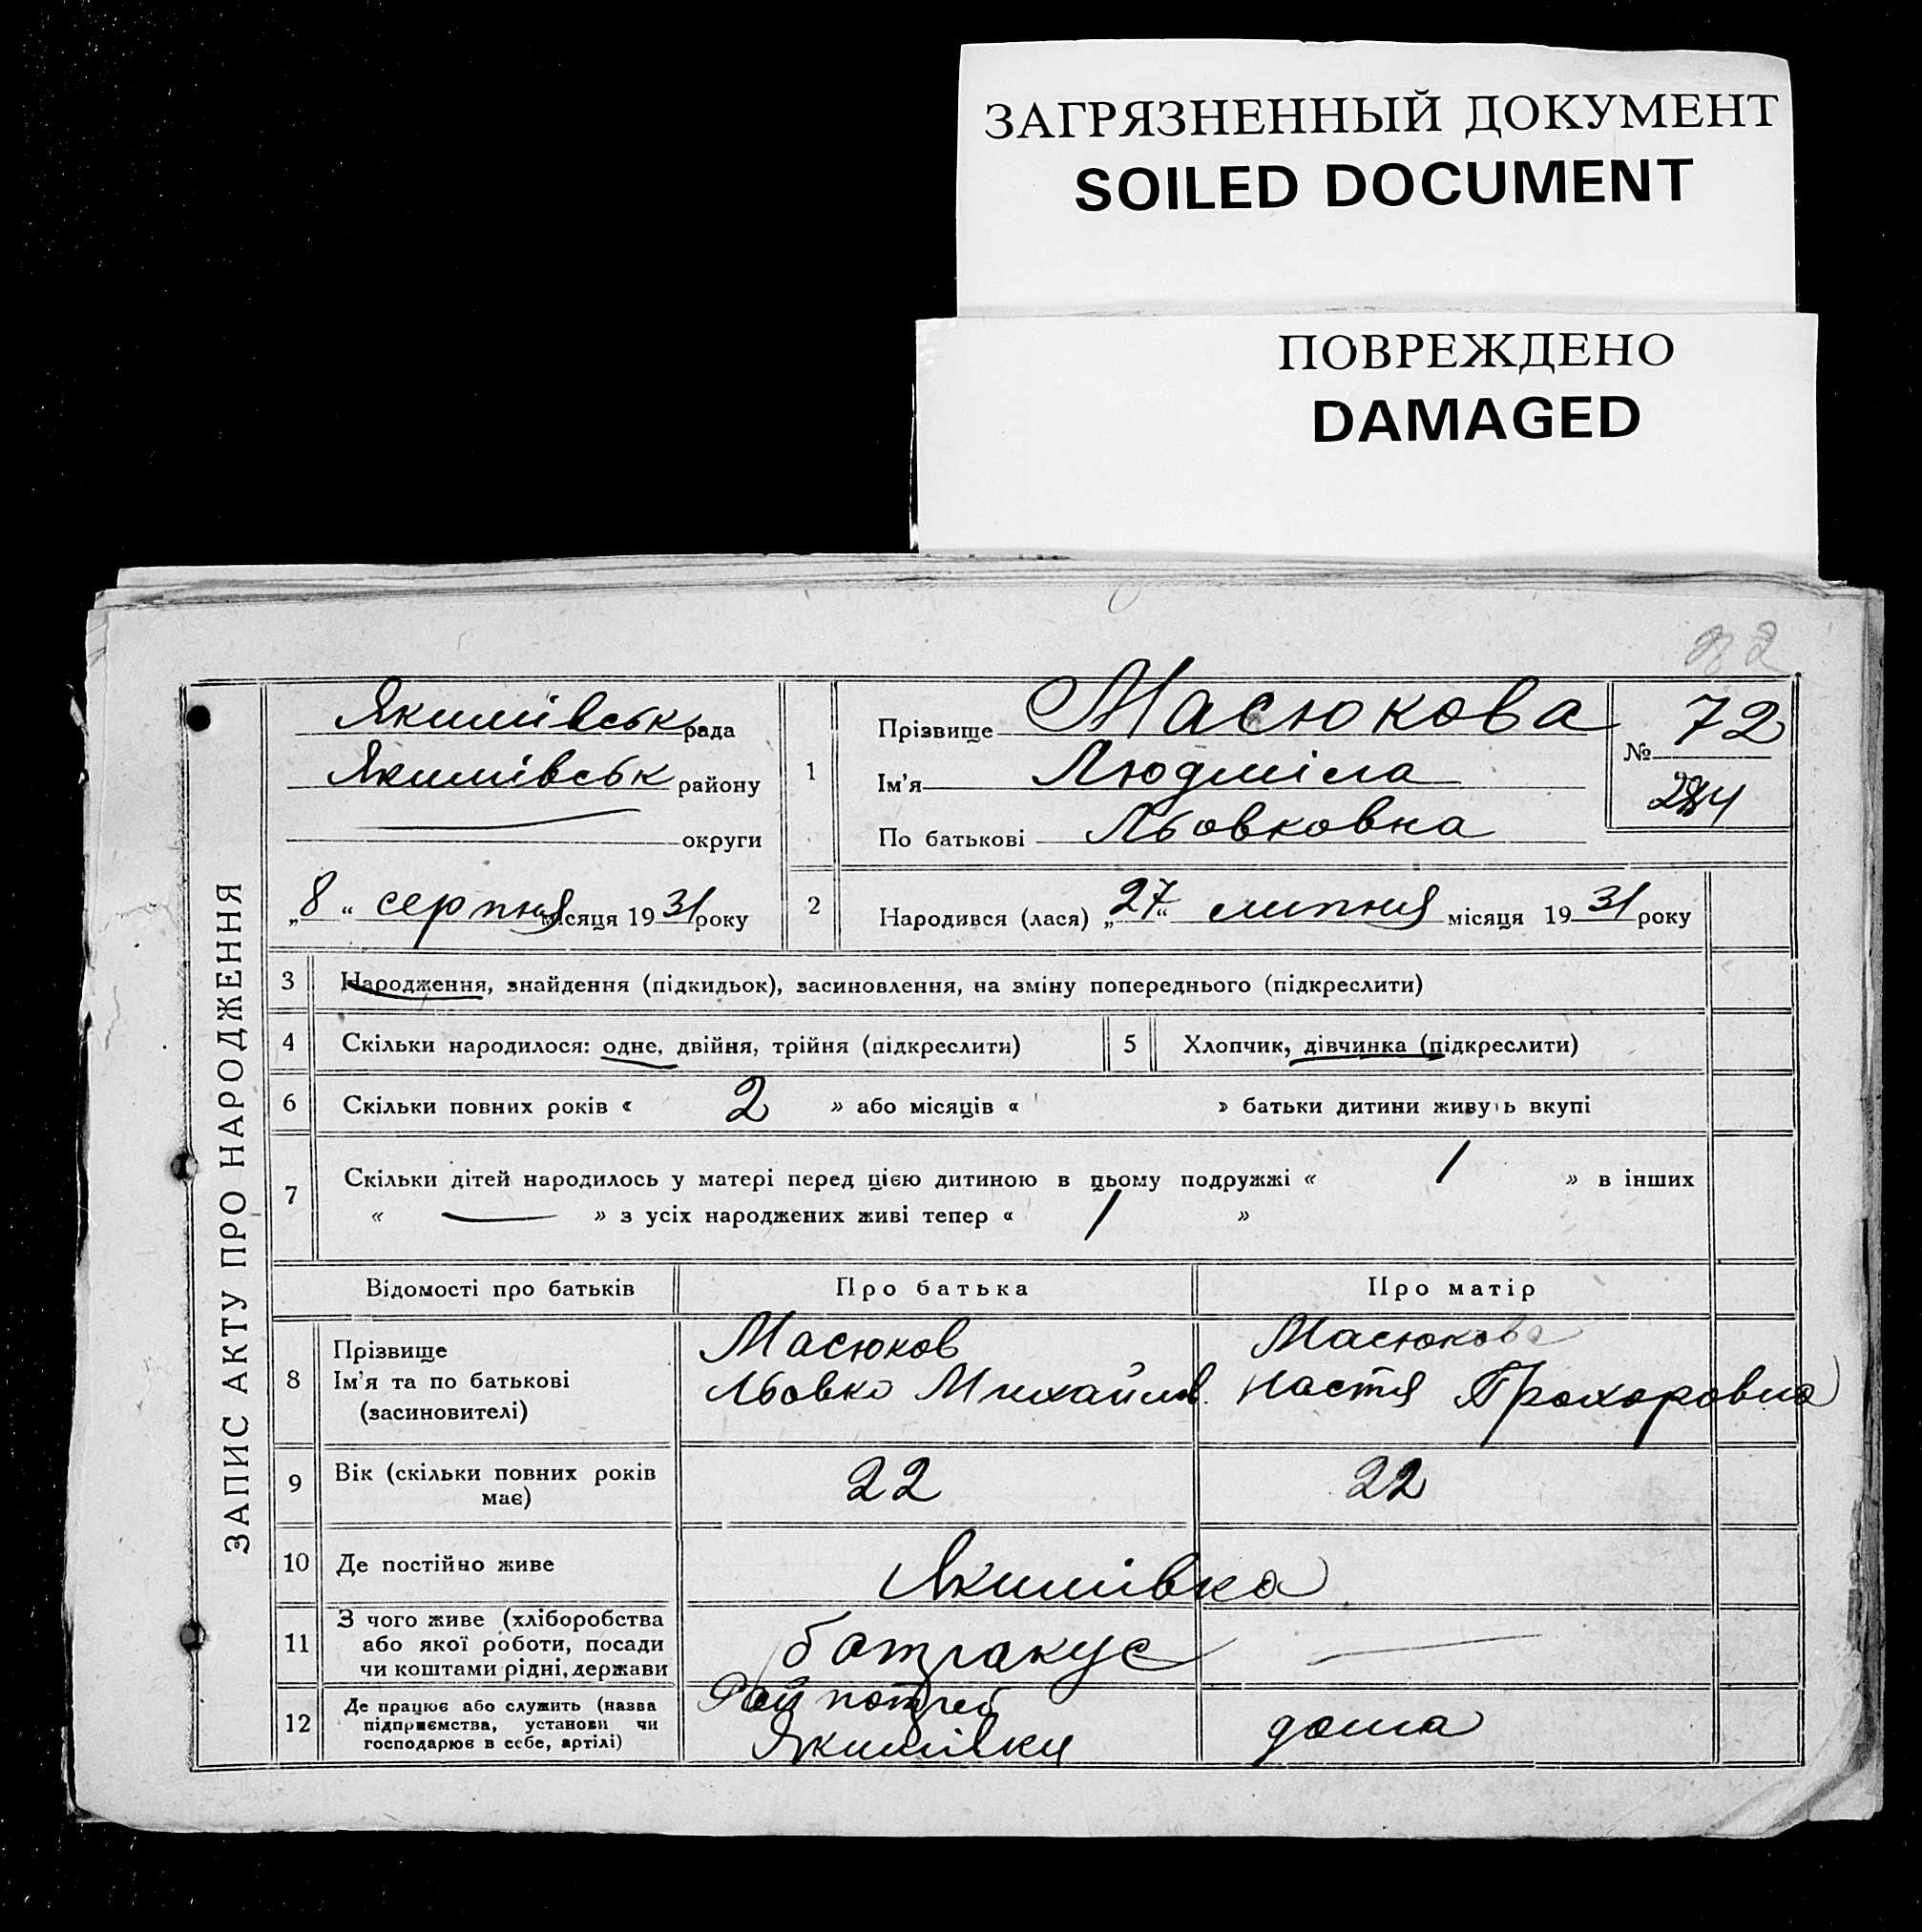 ЗАГРЯЗНЕННЫЙ ДОКУМЕНТ
SOILED DOCUMENT
ПОВРЕЖДЕНО
DAMAGED
ЗАПИС АКТУ ПРО НАРОДЖЕННЯ
Якимівськ рада
Якимівськ району
округи
„8“ серпня місяця 1931 року
1
Прізвище Масюкова
Ім'я Людміла
По батькові Льовковна
№ 72
2
Народився (лася) „27“ липня місяця 1931 року
3 Народження, знайдення (підкидьок), засиновлення, на зміну попереднього (підкреслити)
4 Скільки народилося: одне, двійня, трійня (підкреслити) 5 Хлопчик, дівчинка (підкреслити)
6 Скільки повних років « 2 » або місяців « » батьки дитини живуть вкупі
7 Скільки дітей народилось у матері перед цією дитиною в цьому подружжі « 1 » в інших
« — » з усіх народжених живі тепер « 1 »
Відомості про батьків Про батька Про матір
8 Прізвище Масюков Масюкова
Ім'я та по батькові Льовко Михайлов. Настя Прохоровна
(засиновителі)
9 Вік (скільки повних років має) 22 22
10 Де постійно живе Якимівка
11 З чого живе (хліборобства
або якої роботи, посади
чи коштами рідні, держави батракує —
12 Де працює або служить (назва
підприємства, установи чи
господарює в себе, артілі) Райпотреб
Якимівки дома